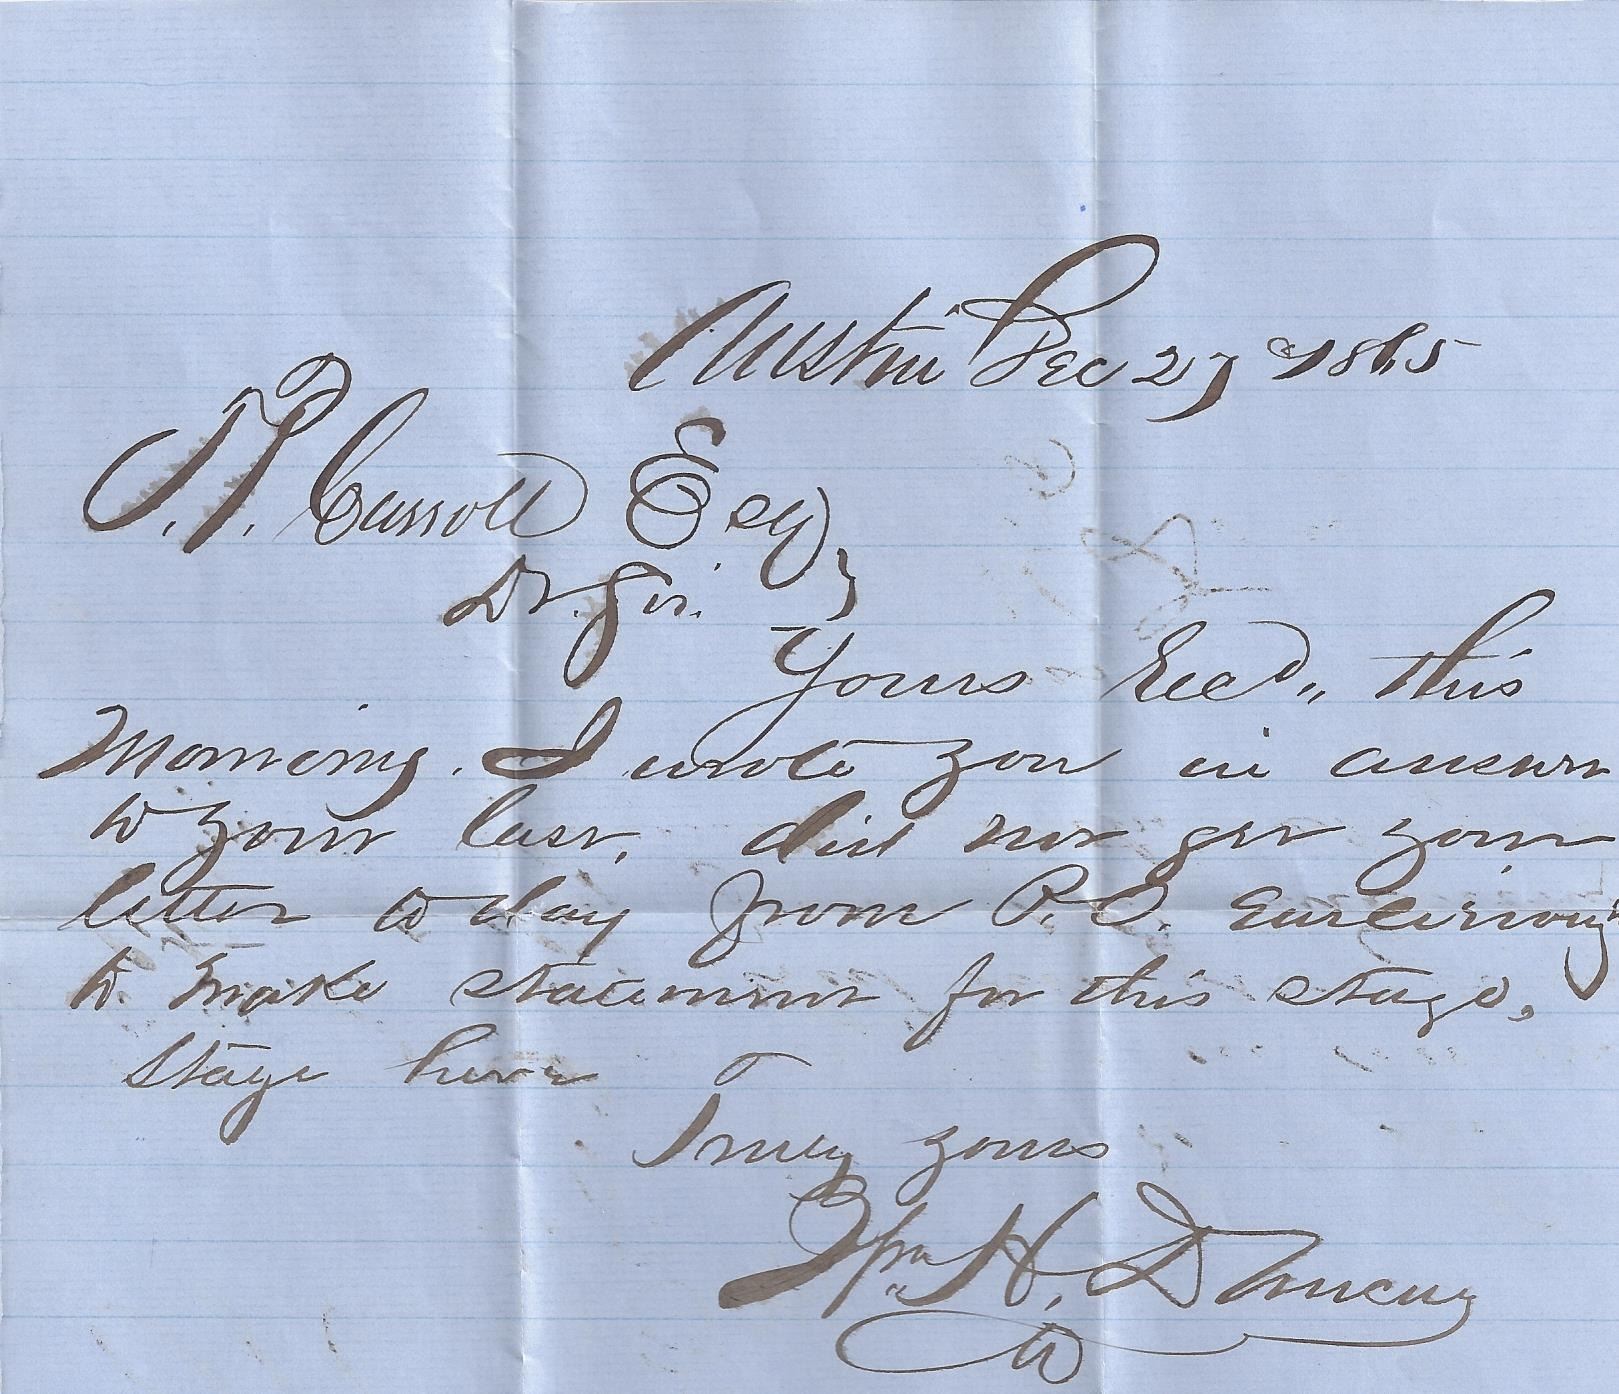 Austin Dec 27 1865
J. P. Carroll Esq,
Dr. Sir.
Yours Recd,, this
Morning. I wrote you in answer
to your last, did not get your
letter to day from P.O. Early enough
to make statement for this stage,
Stage here
Truly yours
Wm H. D